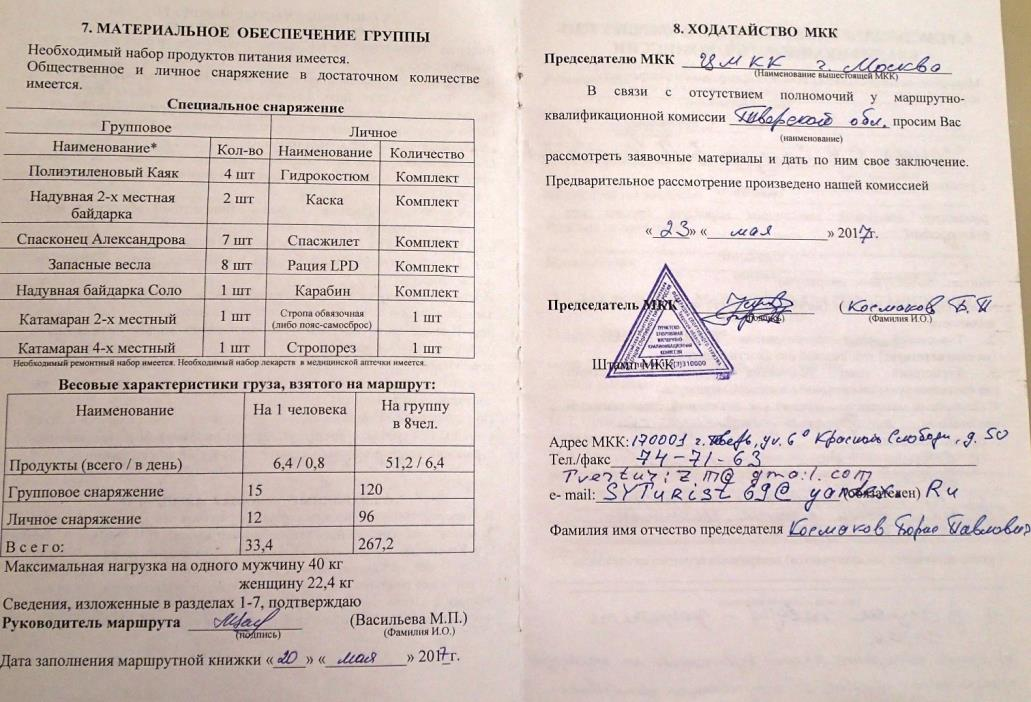 7. МАТЕРИАЛЬНОЕ ОБЕСПЕЧЕНИЕ ГРУППЫ
Необходимый набор продуктов питания имеется.
Общественное и личное снаряжение в достаточном количестве
имеется.
Специальное снаряжение
Групповое Личное
Наименование* Кол-во Наименование Количество
Полиэтиленовый Каяк 4 шт Гидрокостюм Комплект
Надувная 2-х местная байдарка 2 шт Каска Комплект
Спасконец Александрова 7 шт Спасжилет Комплект
Запасные весла 8 шт Рация LPD Комплект
Надувная байдарка Соло 1 шт Карабин Комплект
Катамаран 2-х местный 1 шт Стропа обвязочная (либо пояс-самосброс) 1 шт
Катамаран 4-х местный 1 шт Стропорез 1 шт
Необходимый ремонтный набор имеется. Необходимый набор лекарств в медицинской аптечки имеется.
Весовые характеристики груза, взятого на маршрут:
Наименование На 1 человека На группу в 8чел.
Продукты (всего / в день) 6,4 / 0,8 51,2 / 6,4
Групповое снаряжение 15 120
Личное снаряжение 12 96
В с е г о: 33,4 267,2
Максимальная нагрузка на одного мужчину 40 кг
женщину 22,4 кг
Сведения, изложенные в разделах 1-7, подтверждаю
Руководитель маршрута (Васильева М.П.)
(подпись) (Фамилия И.О.)
Дата заполнения маршрутной книжки «20» «мая» 2017 г.
8. ХОДАТАЙСТВО МКК
Председателю МКК ЦМКК г. Москва
(Наименование вышестоящей МКК)
В связи с отсутствием полномочий у маршрутно-
квалификационной комиссии Тверской обл. просим Вас
(наименование)
рассмотреть заявочные материалы и дать по ним свое заключение.
Предварительное рассмотрение произведено нашей комиссией
«23» «мая» 2017г.
Председатель МКК (Космаков Б.П
(подпись) (Фамилия И.О.)
Штамп МКК
Адрес МКК: 170001 г. Тверь, ул. 6º Красной Слободы, д. 50
Тел./факс 74-71-63
Tverturizm@gmail.com
e- mail: SYTurist69@yandex. (обязателен) Ru
Фамилия имя отчество председателя Космаков Борис Павлович